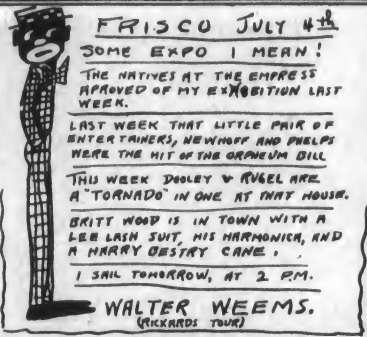 FRISCO JULY 4th
SOME EXPO I MEAN!
THE NATIVES AT THE EMPRESS
APROVED OF MY EXHOBITION LAST
WEEK.
LAST WEEK THAT LITTLE PAIR OF
ENTERTAINERS, NEWHOFF AND PHELPS
WERE THE HIT OF THE ORPHEUM BILL
THIS WEEK DOOLEY & RUGEL ARE
A "TORNADO" IN ONE AT THAT HOUSE.
BRITT WOOD IS IN TOWN WITH A
LEE LASH SUIT, HIS HARMONICA, AND
A HARRY DESTRY CANE.
I SAIL TOMORROW, AT 2 P.M.
WALTER WEEMS.
(RICKARDS TOUR)